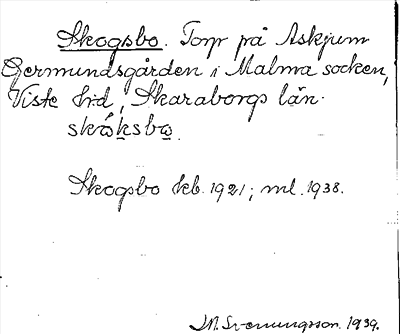 Skogsbo. Torp på Askjum
Germundsgården i Malma socken,
Viste hd, Skaraborgs län.
skóksbo.
Skogsbo kb. 1921; ml. 1938.
M. Svenungsson. 1939.